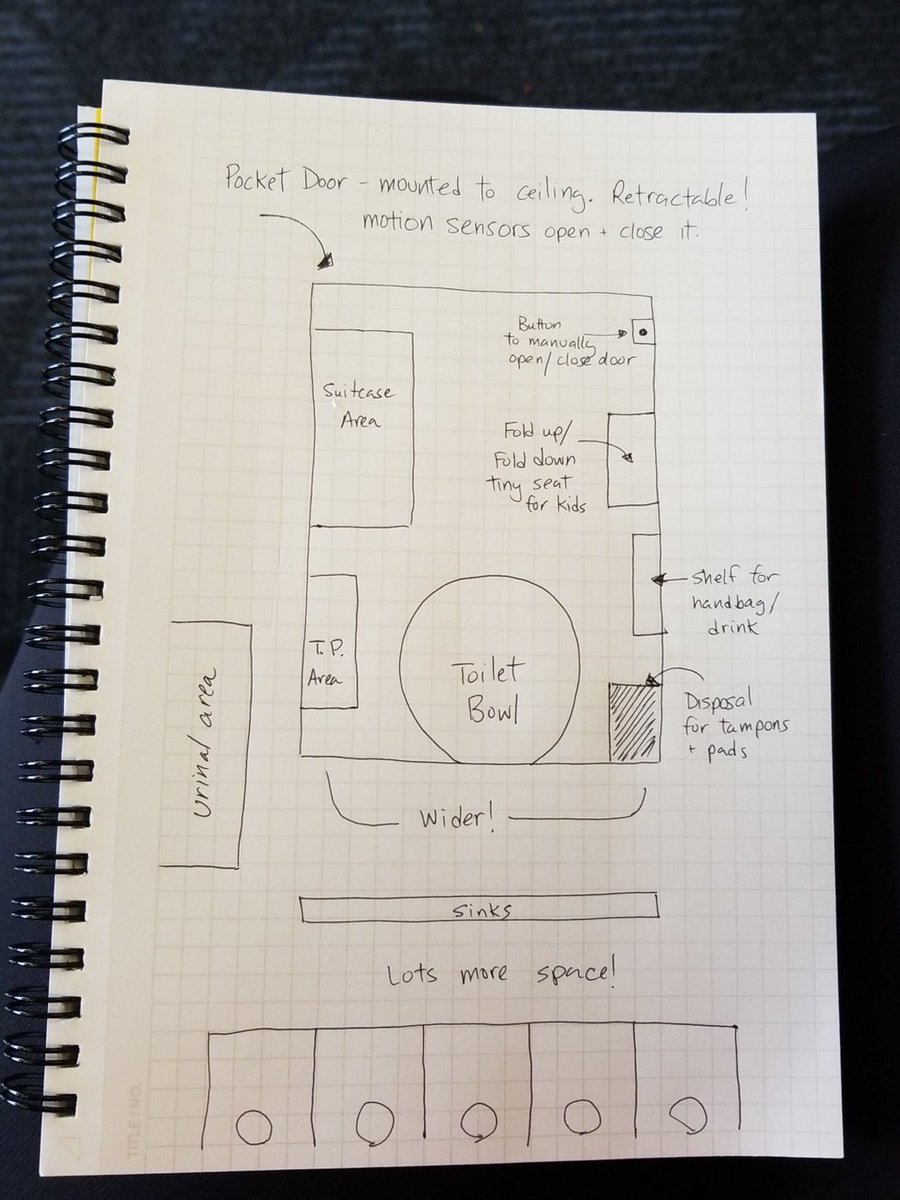 Pocket Door - mounted to ceiling. Retractable!
motion sensors open + close it.
Button
to manually
open/close door
Suitcase
Area
Fold up/
Fold down
tiny seat
for kids
shelf for
handbag/
drink
T.P.
Area
Toilet
Bowl
Disposal
for tampons
+ pads
Urinal area
Wider!
sinks
Lots more space!
TITLE/NO.